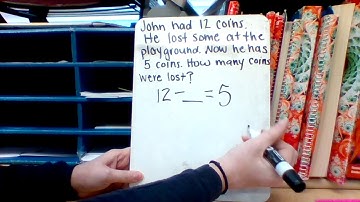 John had 12 coins.
He lost some at the
playground. Now he has
5 coins. How many coins
were lost?
12 - __ = 5